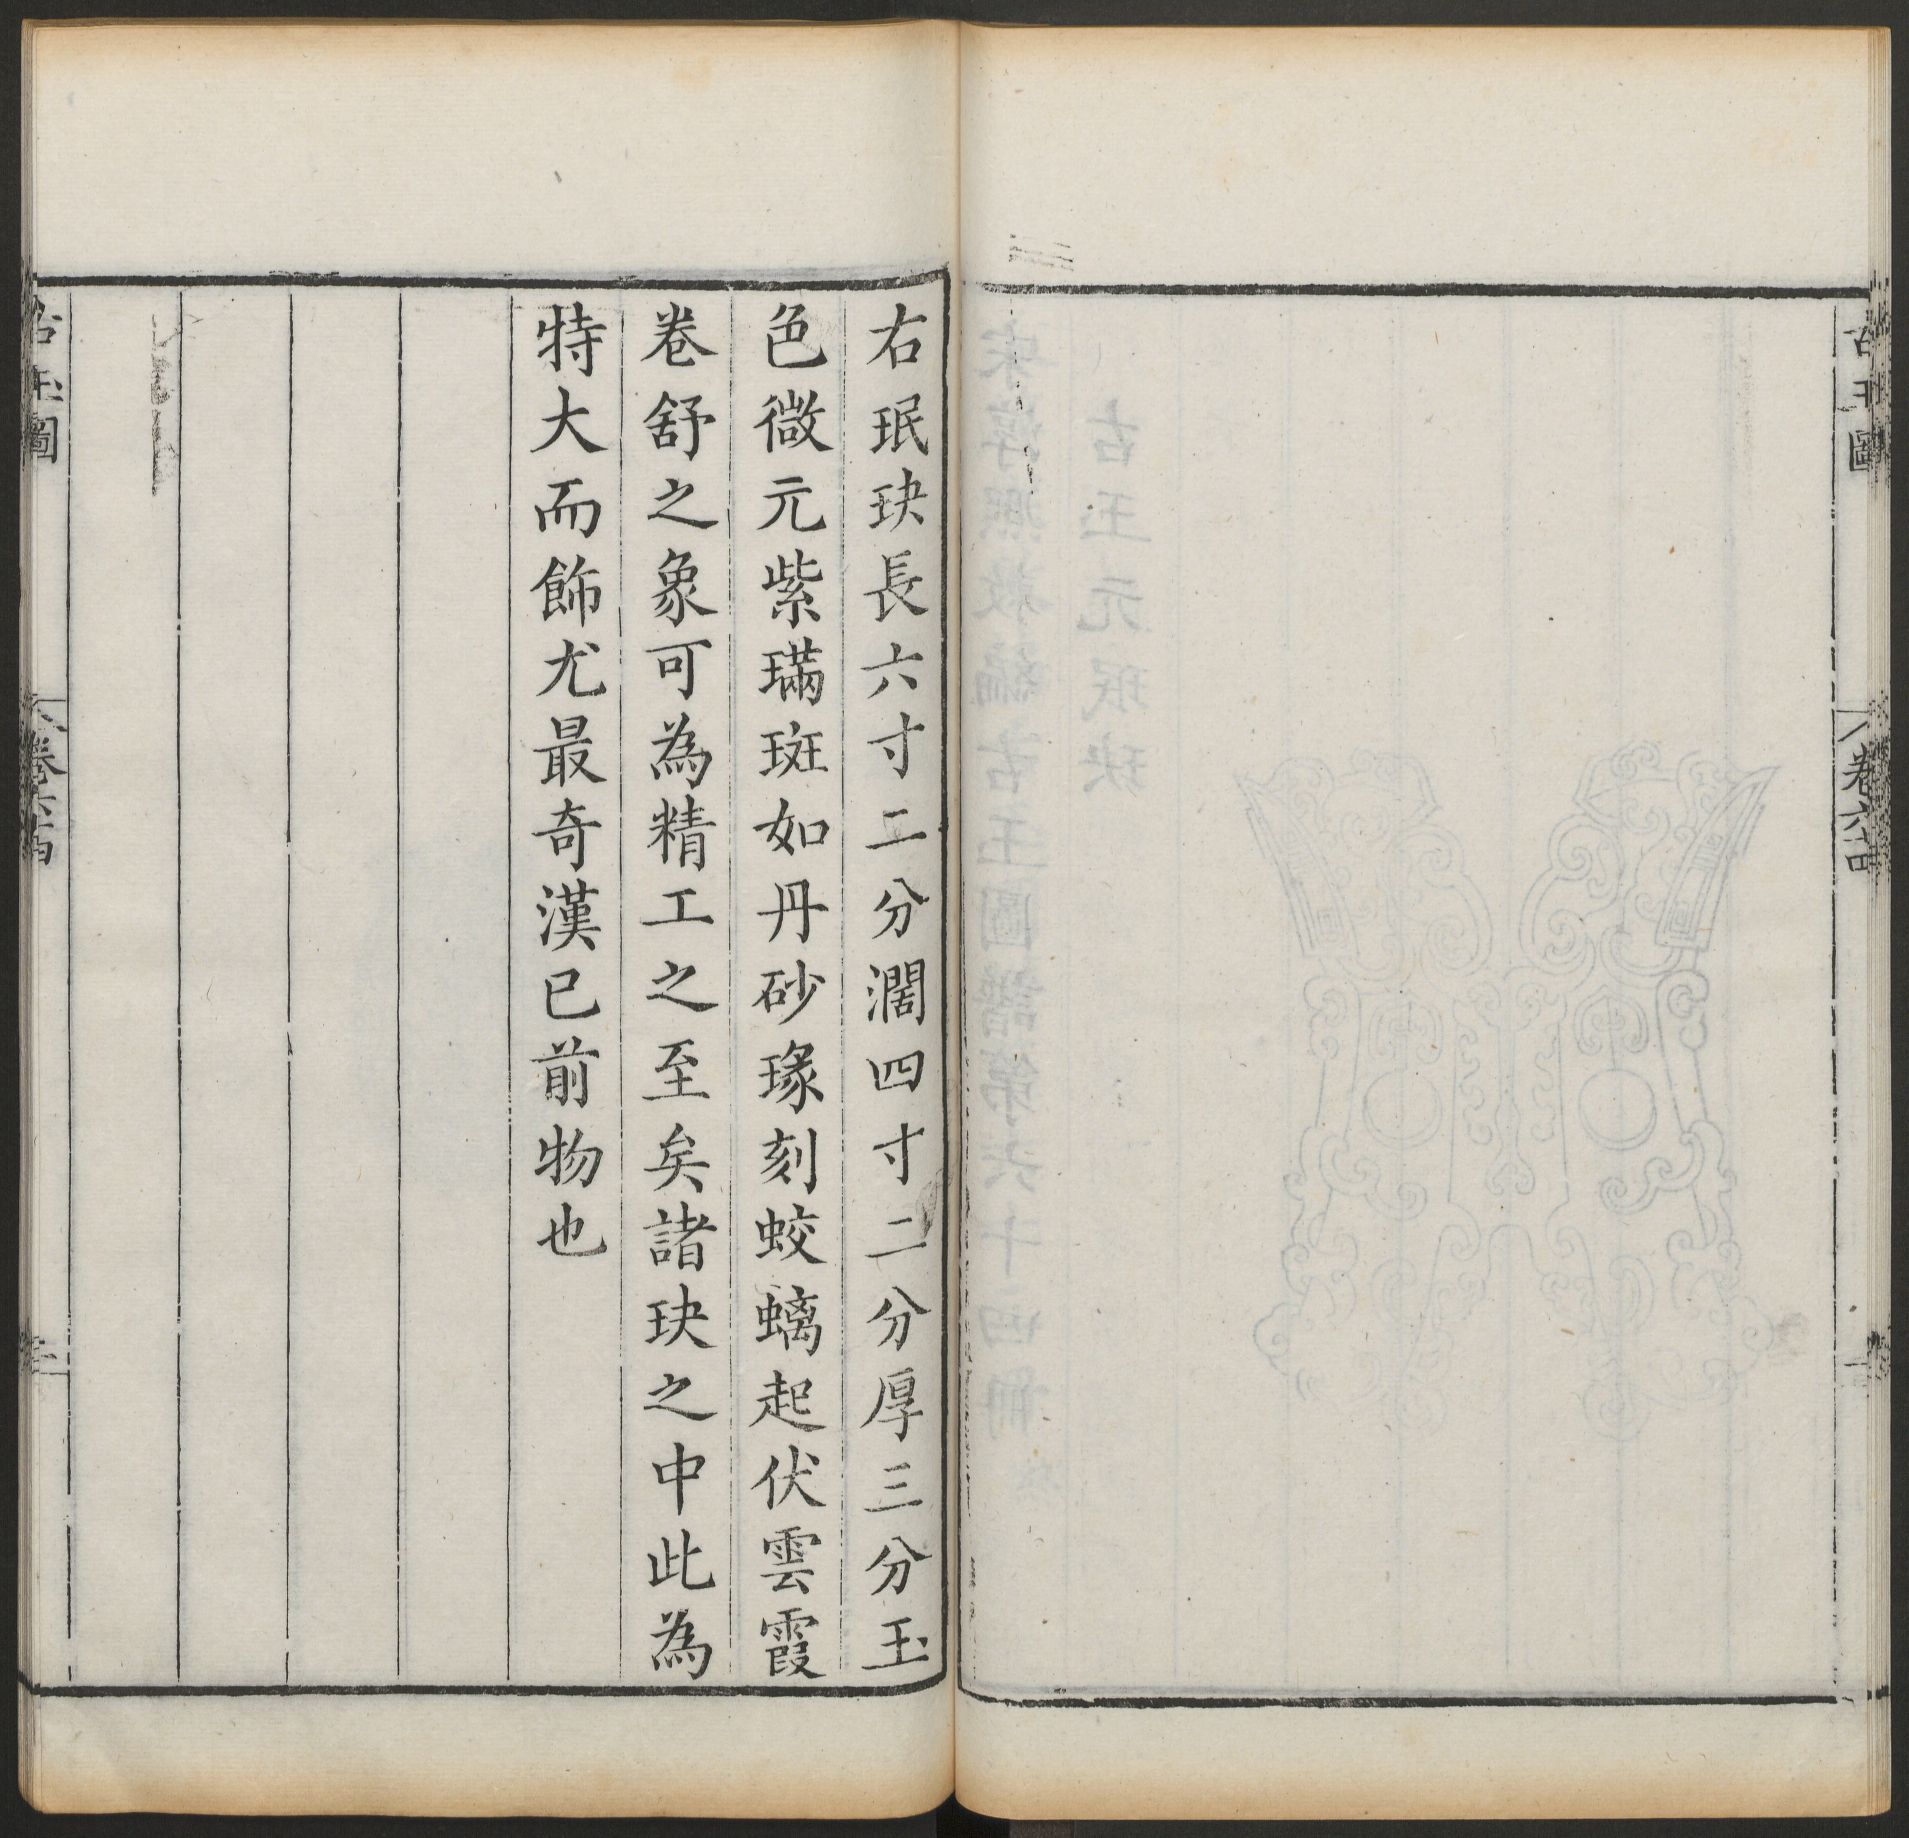 古玉圖
卷六十四
右珉玦長六寸二分濶四寸二分厚三分玉
色微元紫璊斑如丹砂瑑刻蛟螭起伏雲霞
卷舒之象可為精工之至矣諸玦之中此為
特大而飾尤最奇漢已前物也
古玉圖